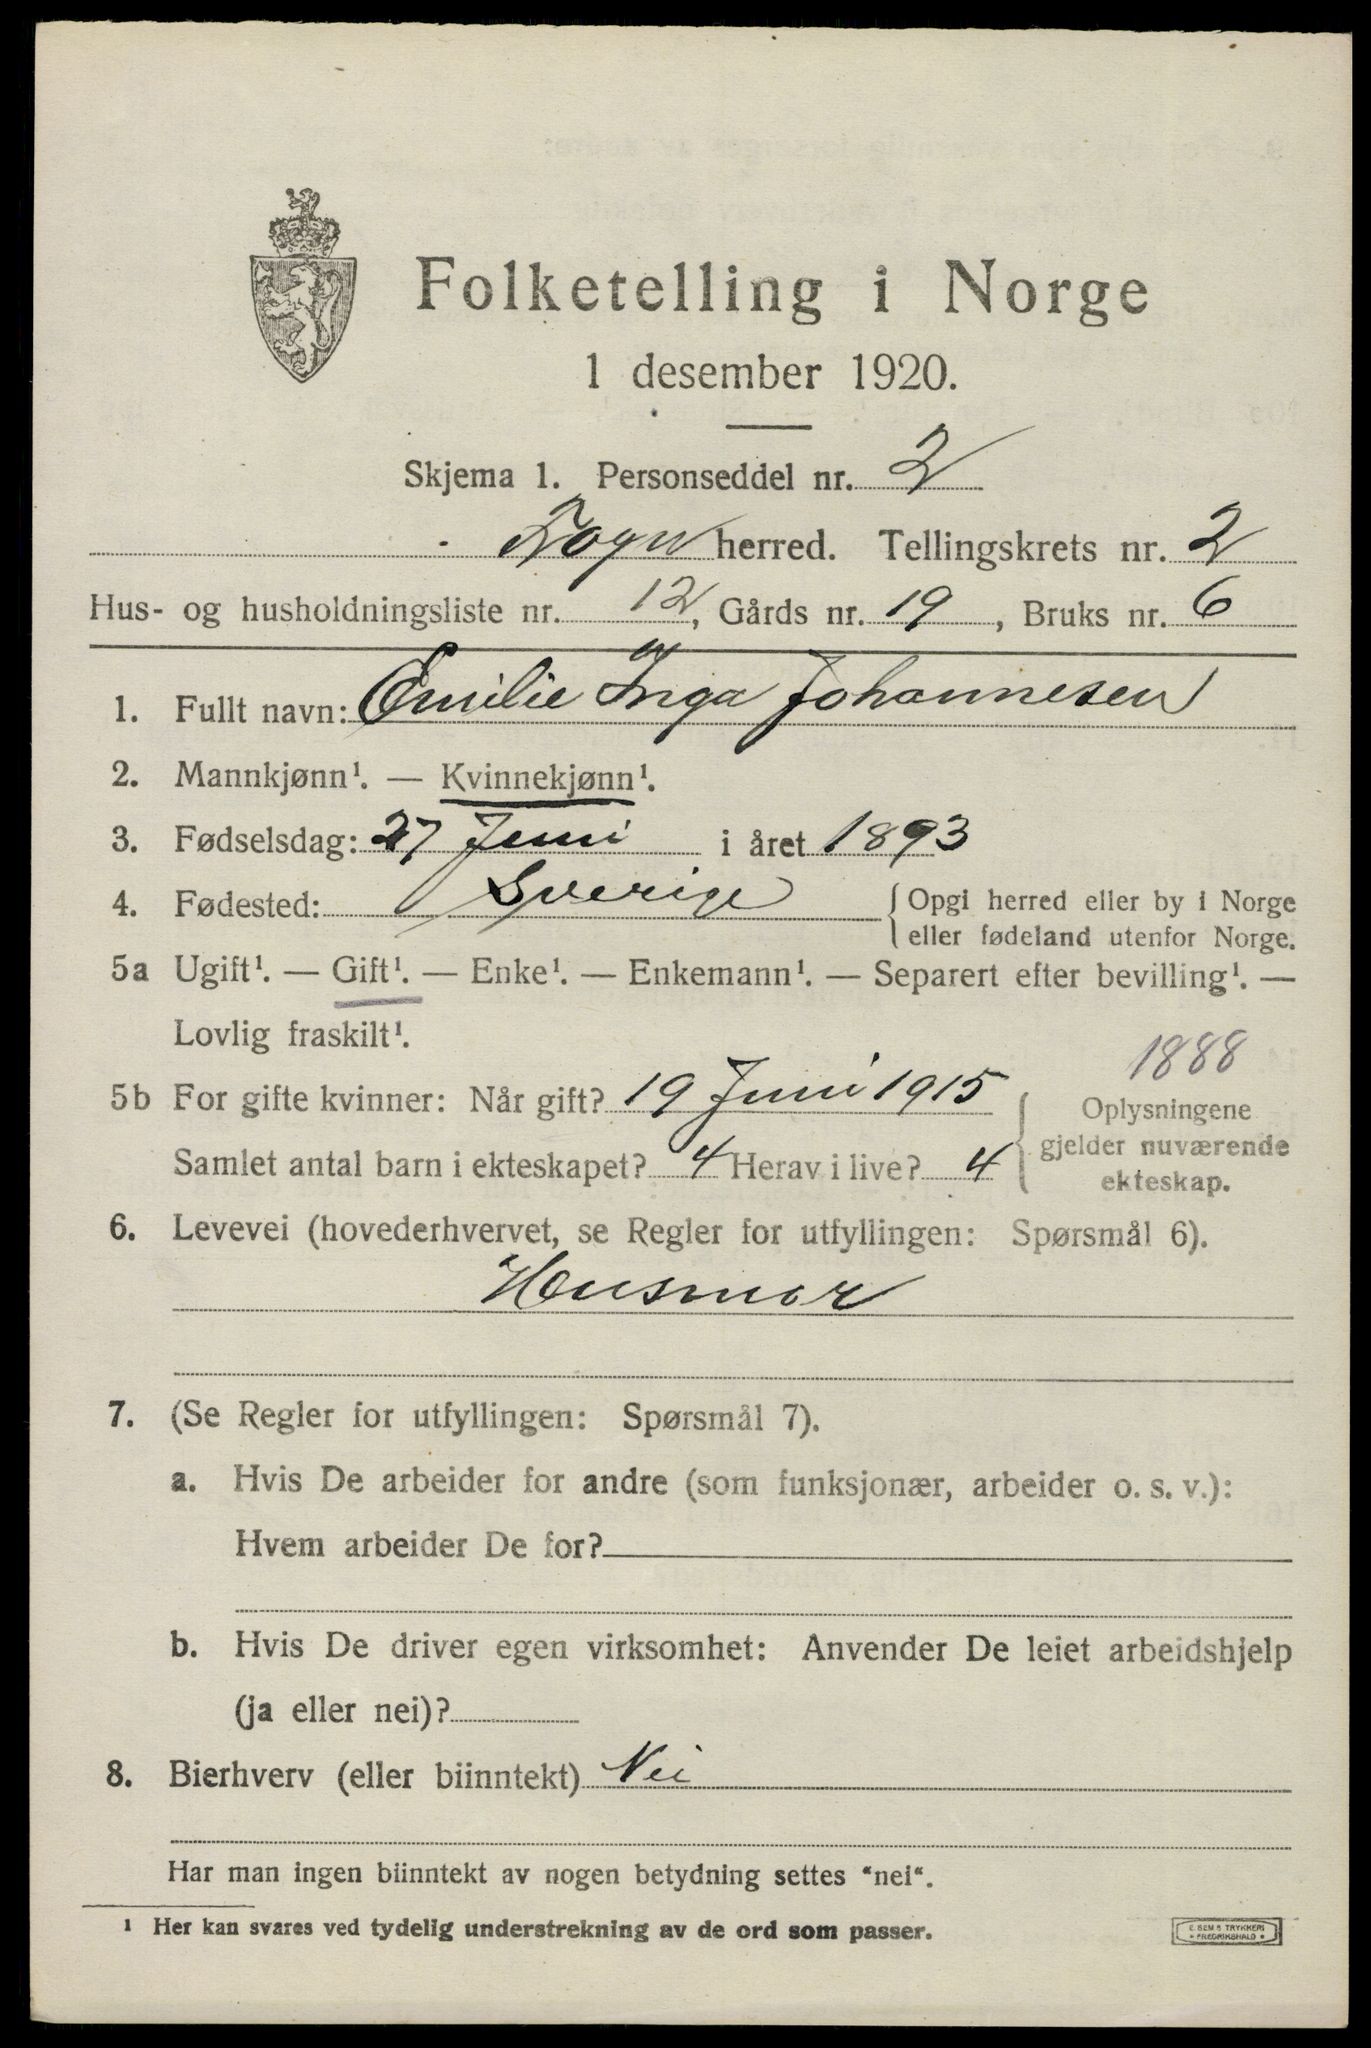 Folketelling i Norge
1 desember 1920.
Skjema 1. Personseddel nr. 2
Togn herred. Tellingskrets nr. 2
Hus- og husholdningsliste nr. 12, Gårds nr. 19, Bruks nr. 6
1. Fullt navn: Emilie Inga Johannesen
2. Mannkjønn¹. — Kvinnekjønn¹.
3. Fødselsdag: 27 Juni i året 1893
4. Fødested: Sverige { Opgi herred eller by i Norge
eller fødeland utenfor Norge.
5a Ugift¹. — Gift¹. — Enke¹. — Enkemann¹. — Separert efter bevilling¹. —
Lovlig fraskilt¹.
1888
5b For gifte kvinner: Når gift? 19 Juni 1915 { Oplysningene
gjelder nuværende
Samlet antal barn i ekteskapet? 4 Herav i live? 4
ekteskap.
6. Levevei (hovederhvervet, se Regler for utfyllingen: Spørsmål 6).
Husmor
7. (Se Regler for utfyllingen: Spørsmål 7).
a. Hvis De arbeider for andre (som funksjonær, arbeider o. s. v.):
Hvem arbeider De for?
b. Hvis De driver egen virksomhet: Anvender De leiet arbeidshjelp
(ja eller nei)?
8. Bierhverv (eller biinntekt) Nei
Har man ingen biinntekt av nogen betydning settes "nei".
¹ Her kan svares ved tydelig understrekning av de ord som passer.
E. SEM'S TRYKKERI
• FREDRIKSHALD •